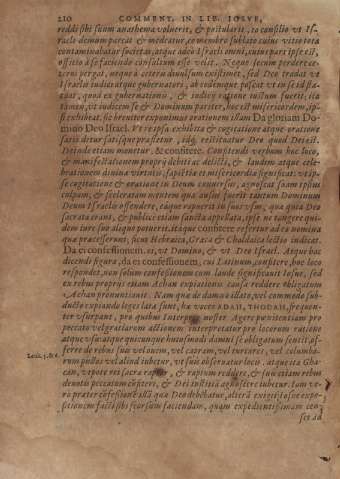 210 COMMENT. IN LIB. IOSVE,
reddi sibi suum anathema voluerit, & postularit, eo consilio vt Is-
raeli demum parcat & medeatur, eo membro sublato cuius vitio tota
contaminabatur societas, atque adeo Israeli omni, cuius pars ipse est,
officio à se faciendo consultum esse velit. Neque secum perdere ce-
teros pergat, neque à ceteris diuulsum existimet, sed Deo tradat vt
Israelis iudici atque gubernatori, ab eodemque poscat vt in se id sta-
tuat, quod ex gubernationis, & iudicij ratione iustum fuerit, ita
tamen, vt iudicem se & Dominum pariter, hoc est misericordem, ip-
si exhibeat. sic breuiter exponimus orationem illam Da gloriam Do-
mino Deo Israel. Vt re ipsa exhibita & cogitatione atque oratione
satis detur satisque praestetur, idque restituatur Deo quod Dei est.
Deinde etiam monetur & confitere. Complexus verbum hoc loco,
& manifestationem proprij debiti ac delicti, & laudem atque cele-
brationem diuinae virtutis, sapientia et misericordia significat. vt ip-
se cogitatione & oratione in Deum conuersus, agnoscat suam ipsius
culpam, & sceleratam mentem qua ausus fuerit tantum Dominum
Deum Israelis offendere, eaque rapuerit in suos vsus, quae quia Deo
sacrata erant, & publicè etiam sancta appellata, ipse ne tangere qui-
dem iure suo aliquo potuerit. itaque confitere refertur ad ea nomina
quae praecesserunt, sicut Hebraica, Graeca & Chaldaica lectio indicat.
Da ei confessionem. id est Domino, & vt Deo Israel. Atque hac
dicendi figura, da ei confessionem, cui Latinum, confitere, hoc loco
respondet, non solum confessionem cum laude significauit Iosue, sed
ex rebus proprijs etiam Achan expiationis causa reddere obligatum
Achan pronuntiauit. Nam quae de damno illato, vel commodo sub-
ducto expiando leges latae sunt, hae voce ADII, THODAH, frequen-
ter vsurpant, pro quibus Interpres noster. Agere poenitentiam pro
peccato vel gratiarum actionem interpretatur pro locorum ratione
atque vsu. atque quicunque huiusmodi damni se obligatum sentit af-
ferre de rebus suis vel ouem, vel capram, vel turtures, vel columba-
rum pullos vel aliud iubetur, vt suis obseruatur locis. atque ita Gha-
can, vtpote rei sacrae raptor, & raptum reddere, & suis etiam rebus
Leuit. 5. & 6.
deuotis peccatum confiteri, & Dei iustitiā agnoscere iubetur. iam ve-
rò praeter confessionē illā quae Deo debebatur, alterā exigit Iosue expo-
sitionem facti sibi seorsum faciendam, quam expeditissimam con-
set ad